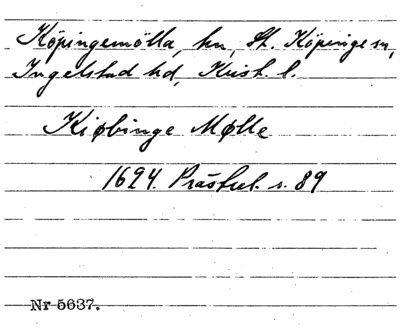 Köpingemölla, hn, St. Köpinge sn,
Ingelstad hd, Krist. l.
Kiøbinge Mølle
1694. Prästrel. s. 89
Nr 5637.